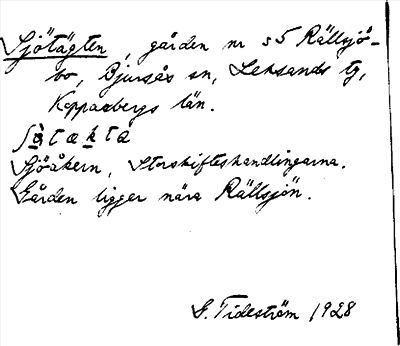 Sjötägten, gården nr s5 Rällsjö-
bo, Bjursås sn, Leksands tg,
Kopparbergs län.
Sjöåkern, Storskifteshandlingarna.
Gården ligger nära Rällsjön.
G. Tideström 1928